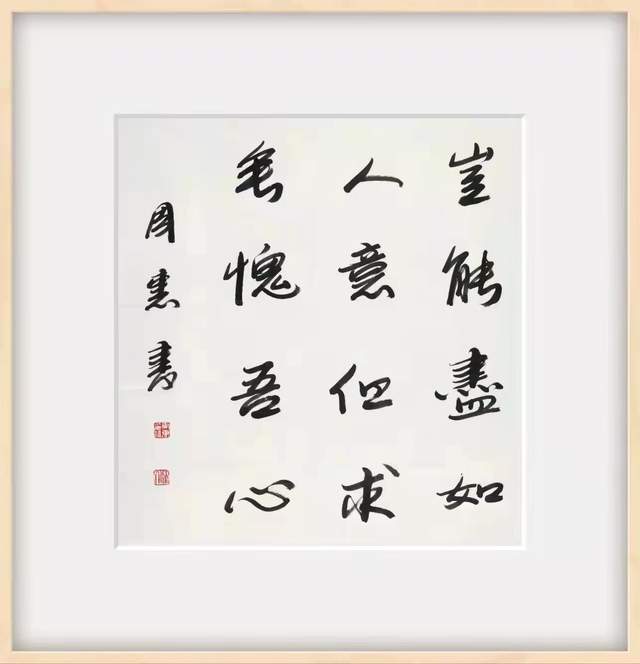 豈能盡如
人意但求
無愧吾心
周惠書